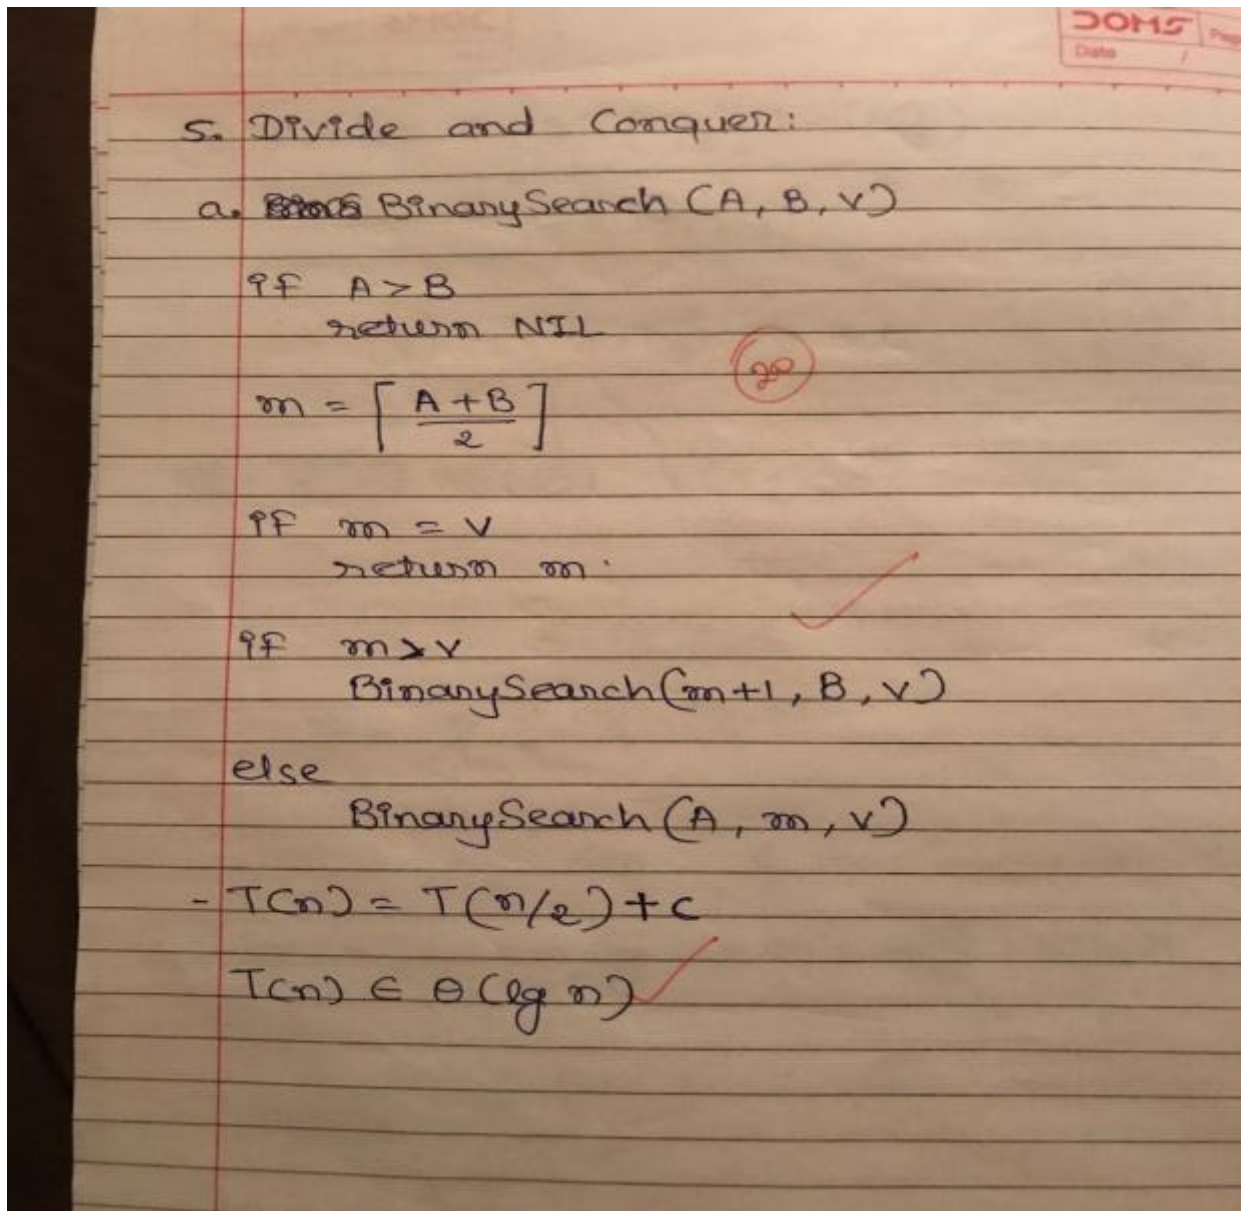 DOMS
Page
Date /
5. Divide and Conquer:
a. BinarySearch (A, B, v)
if A > B
return NIL
20
m = ⌈ A + B / 2 ⌉
if m = v
return m.
if m > v
BinarySearch (m+1, B, v)
else
BinarySearch (A, m, v)
- T(n) = T(n/2) + c
T(n) ∈ Θ(lg n)